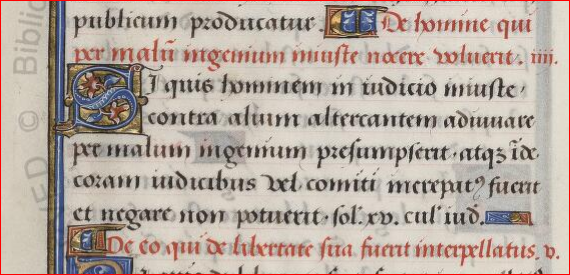 publicum producatur. De homine qui
per malū ingenium iniuste nocere voluerit. iiii.
Si quis hominem in iudicio iniuste
contra alium altercantem adiuuare
per malum ingenium presumpserit. atqz īde
coram iudicibus vel comiti increpatꝰ fuerit
et negare non potuerit. sol. xv. cul. iud.
De eo qui de libertate sua fuerit interpellatus. v.